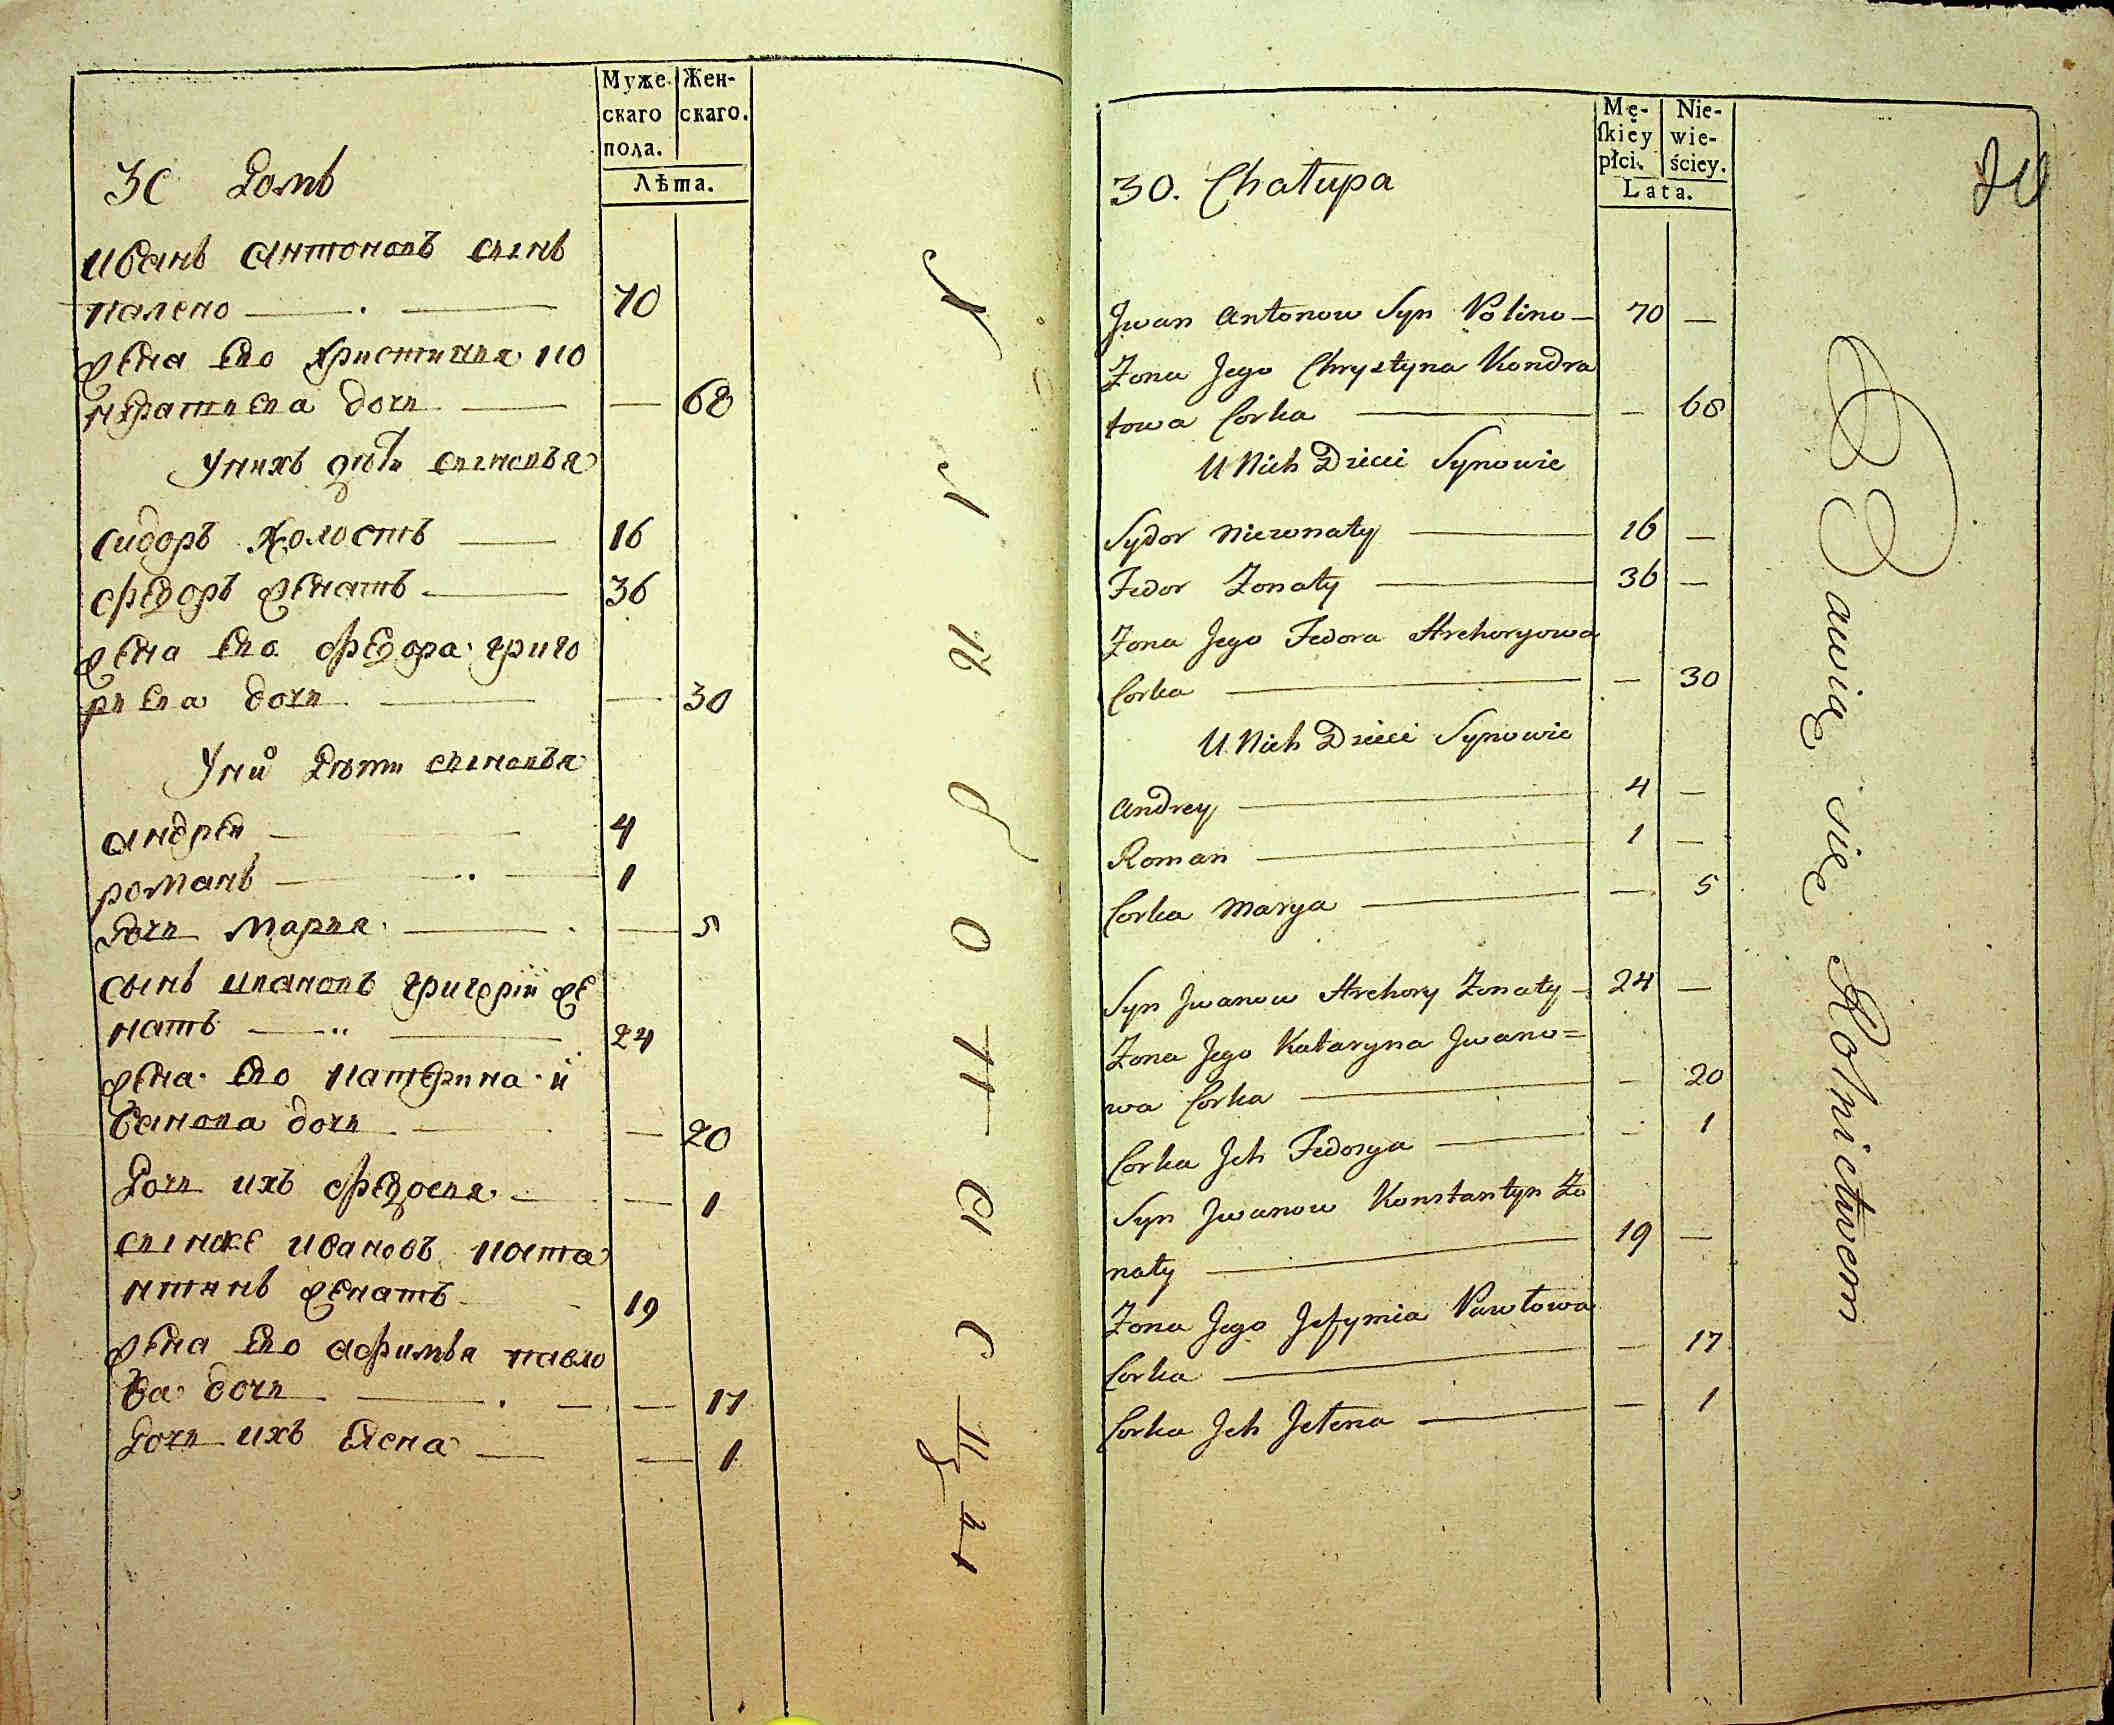 Муже- Жен-
скаго скаго.
пола.
Лѣта.
30 Домъ
Иванъ Антоновъ сынъ
палено 70
жена его христиния ко
ндратиева дочи — 68
У нихъ дѣти сыновья
Сидоръ холостъ 16
Федоръ женатъ 36
жена его Федора григо
риева дочи — 30
У ний дѣти сыновья
Андрей 4
романъ 1
дочи Мария — 5
сынъ ивановъ григорій же
натъ 24
жена его катерина и
ванова дочи — 20
дочи ихъ Федосия — 1
сынже ивановъ конста
нтинъ женатъ 19
жена его афимья павло
ва дочи — 17
дочи ихъ Елена — 1
Mę- Nie-
skiey wie-
płci. ściey.
Lata.
30. Chałupa
Jwan Antonow Syn Polino — 70 —
Żona Jego Chrystyna Kondra
towa Corka — 68
U Nich Dzieci Synowie
Sydor Niezonaty 16 —
Fedor Zonaty 36 —
Żona Jego Fedora Hrehoryowa
Corka — 30
U Nich Dzieci Synowie
Andrey 4 —
Roman 1 —
Corka Marya — 5
Syn Jwanow Hrehory Zonaty — 24 —
Żona Jego Kataryna Jwano=
wa Corka — 20
Corka Jch Fedosya — 1
Syn Jwanow Konstantyn Zo
naty 19 —
Żona Jego Jefymia Pawłowa
Corka — 17
Corka Jch Jelena — 1
Bawią się Rolnictwem